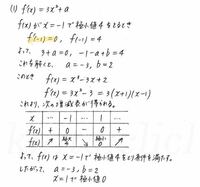 (1) f'(x) = 3x² + a
f(x)が x=-1 で極小値4をとるとき
f'(-1)=0, f(-1)=4
よって, 3+a=0, -1-a+b=4
これを解くと, a=-3, b=2
このとき f(x)=x³-3x+2
f'(x)=3x²-3=3(x+1)(x-1)
より, 次の増減表が得られる。
x … -1 … 1 …
f'(x) + 0 - 0 +
f(x) ↗ 4 ↘ 0 ↗
よって, f(x)は x=-1 で極大値4をとり条件を満たす。
したがって, a=-3, b=2
x=1で極小値0